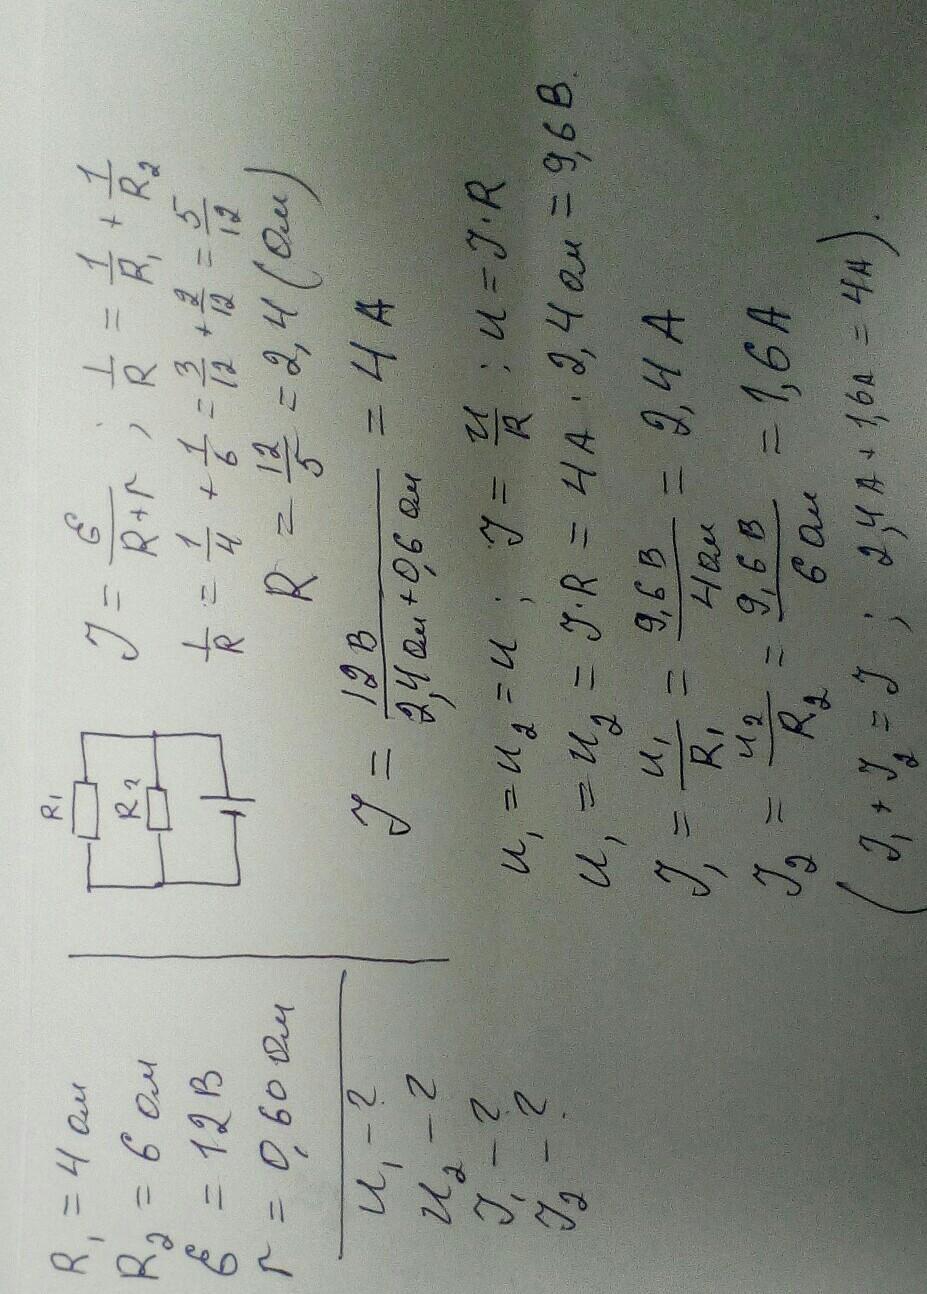 R₁ = 4 ом
R₂ = 6 ом
ℰ = 12 В
r = 0,60 Ом
U₁ - ?
U₂ - ?
J₁ - ?
J₂ - ?
R₁
R₂
J = ℰ/(R+r) ; 1/R = 1/R₁ + 1/R₂
1/R = 1/4 + 1/6 = 3/12 + 2/12 = 5/12
R = 12/5 = 2,4 (Ом)
J = 12 В/(2,4 Ом + 0,6 ом) = 4 А
U₁ = U₂ = U ; J = U/R ; U = J·R
U₁ = U₂ = J·R = 4 А · 2,4 ом = 9,6 В.
J₁ = U₁/R₁ = 9,6 В/4 ом = 2,4 А
J₂ = U₂/R₂ = 9,6 В/6 ом = 1,6 А
(J₁ + J₂ = J ; 2,4 А + 1,6 А = 4 А).